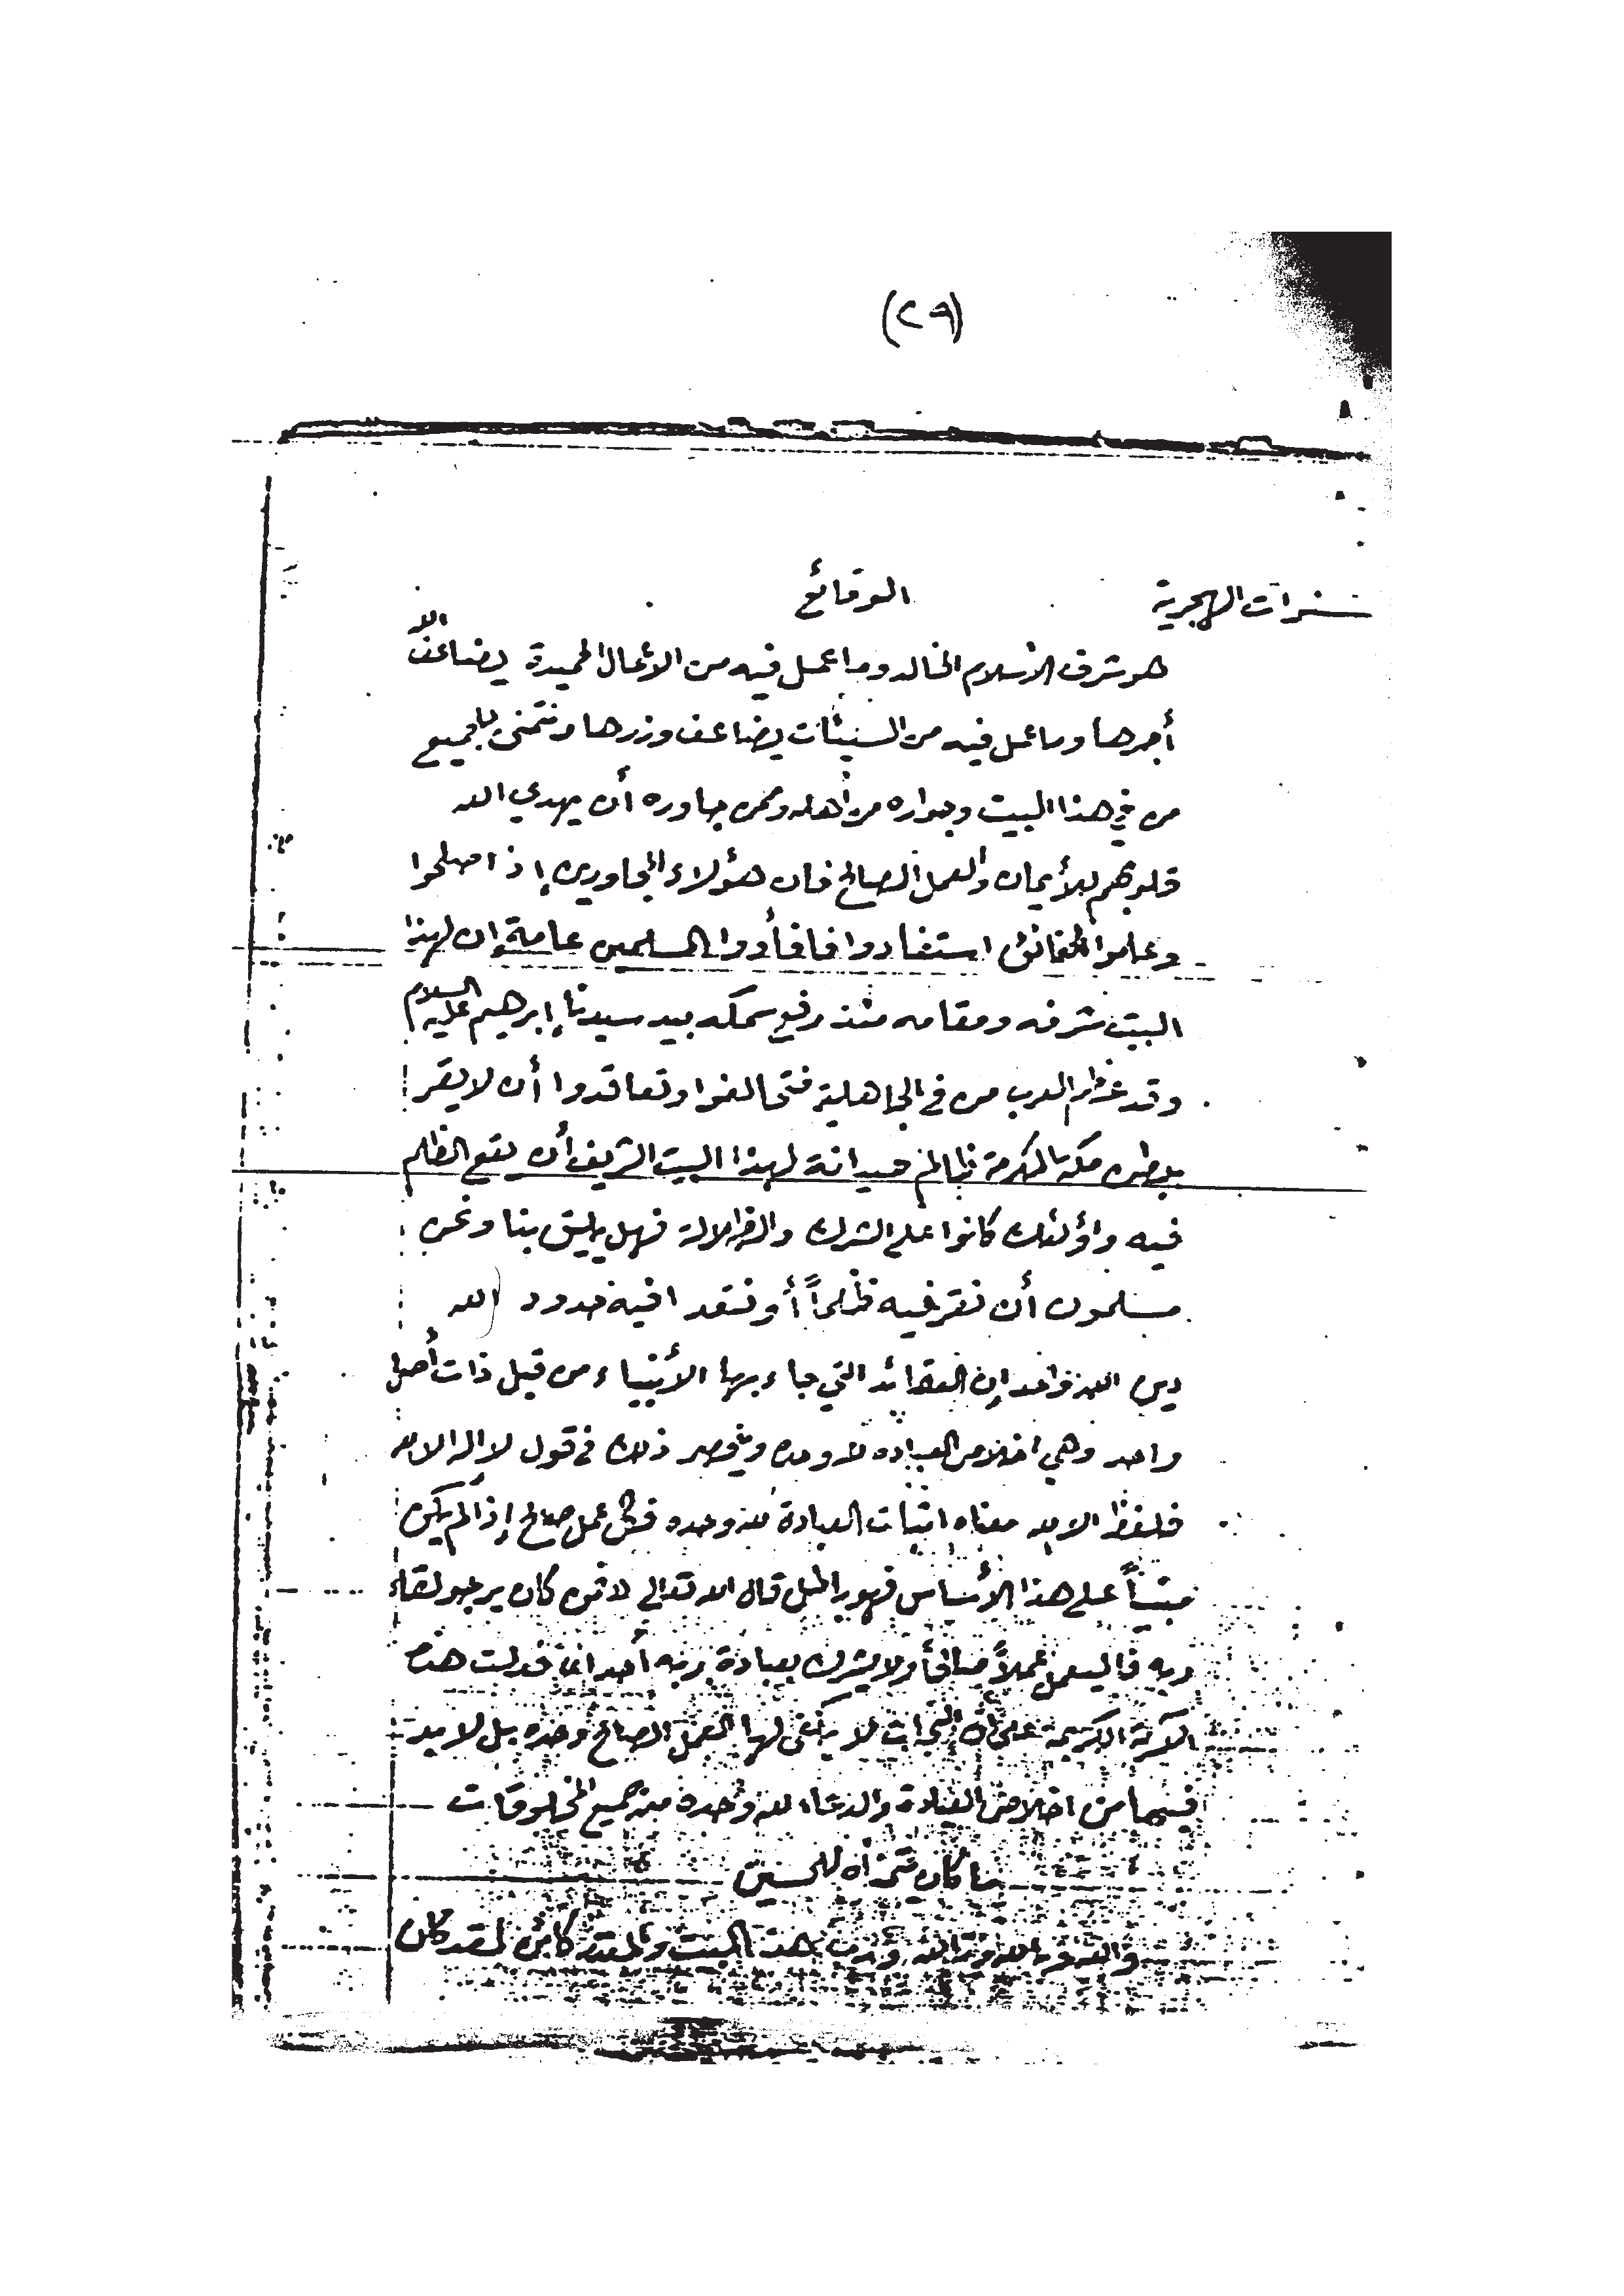 (٢٩)
سنوات الهجرية الوقائع
هو شرف الاسلام الخالد وما عمل فيه من الأعمال الحميدة يضاعف الله
أجرها وما عمل فيه من السيئات يضاعف وزرها ونتمنى لجميع
من في هذا البيت وجواره من أهله وممن جاوره أن يهدي الله
قلوبهم للأيمان والعمل الصالح فان هؤلاء المجاورين إذا اصلحوا
وعلموا الحقائق استفادوا فافأدوا المسلمين عامة إن لهذا
البيت شرفه ومقامه منذ رفع سمكه بيد سيدنا إبرهيم عليه السلام
وقد عظم العرب من في الجاهلية فتحالفوا وتعاقدوا أن لا يقر
ببطن مكة المكرمة ظالم صيدانة لهذا البيت الشريف أن يقع الظلم
فيه واؤلئك كانوا على الشرك والظلالة فهل يليق بنا ونحن
مسلمون أن نقر فيه ظلماً أو نتعدا فيه حدود الله
دين الله واحد إن العقائد التي جاء بها الأنبياء من قبل ذات أصل
واحد وهي اخلاص العباده لله وحده وينحصر ذلك في قول لا اله الا الله
فلفظ الا الله معناه اثبات العبادة لله وحده فكل عمل صالح إذا لم يكن
مبنياً على هذا الأساس فهو باطل قال الله تعالى فمن كان يرجو لقاء
ربه فاليعمل عملاً صالحاً ولا يشرك بعبادة ربه أحدا فدلت هذه
الآية الكريمة على أن لا يكفى لها العمل الصالح وحده بل لا بد
فيها من اخلاص العبادة والدعاء لله وحده من جميع المخلوقات
ما كان للحسين
هذا البيت لقد كان